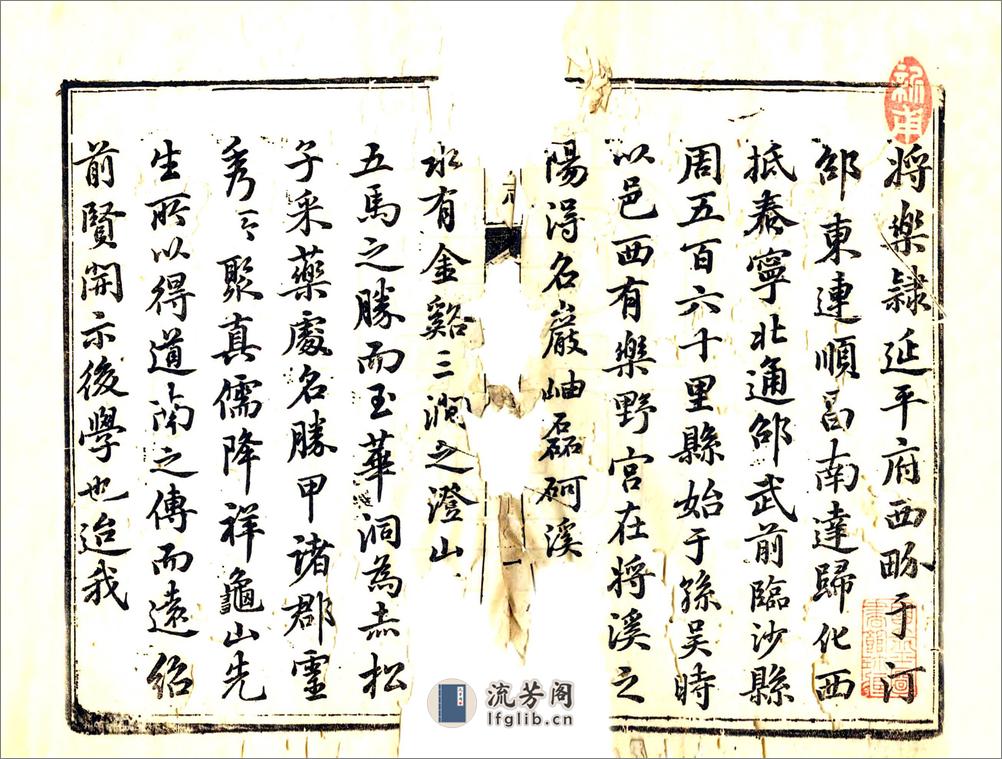 將樂隸延平府西畛于汀
邵東連順昌南達歸化西
抵泰寧北通邵武前臨沙縣
周五百六十里縣始于孫吳時
以邑西有樂野宮在將溪之
陽得名巖岫磊砢溪
水有金谿三澗之澄山
五馬之勝而玉華洞為赤松
子采藥處名勝甲諸郡靈
秀所聚真儒降祥龜山先
生所以得道南之傳而遠紹
前賢開示後學也迨我
志
一
流芳阁
lfglib.cn